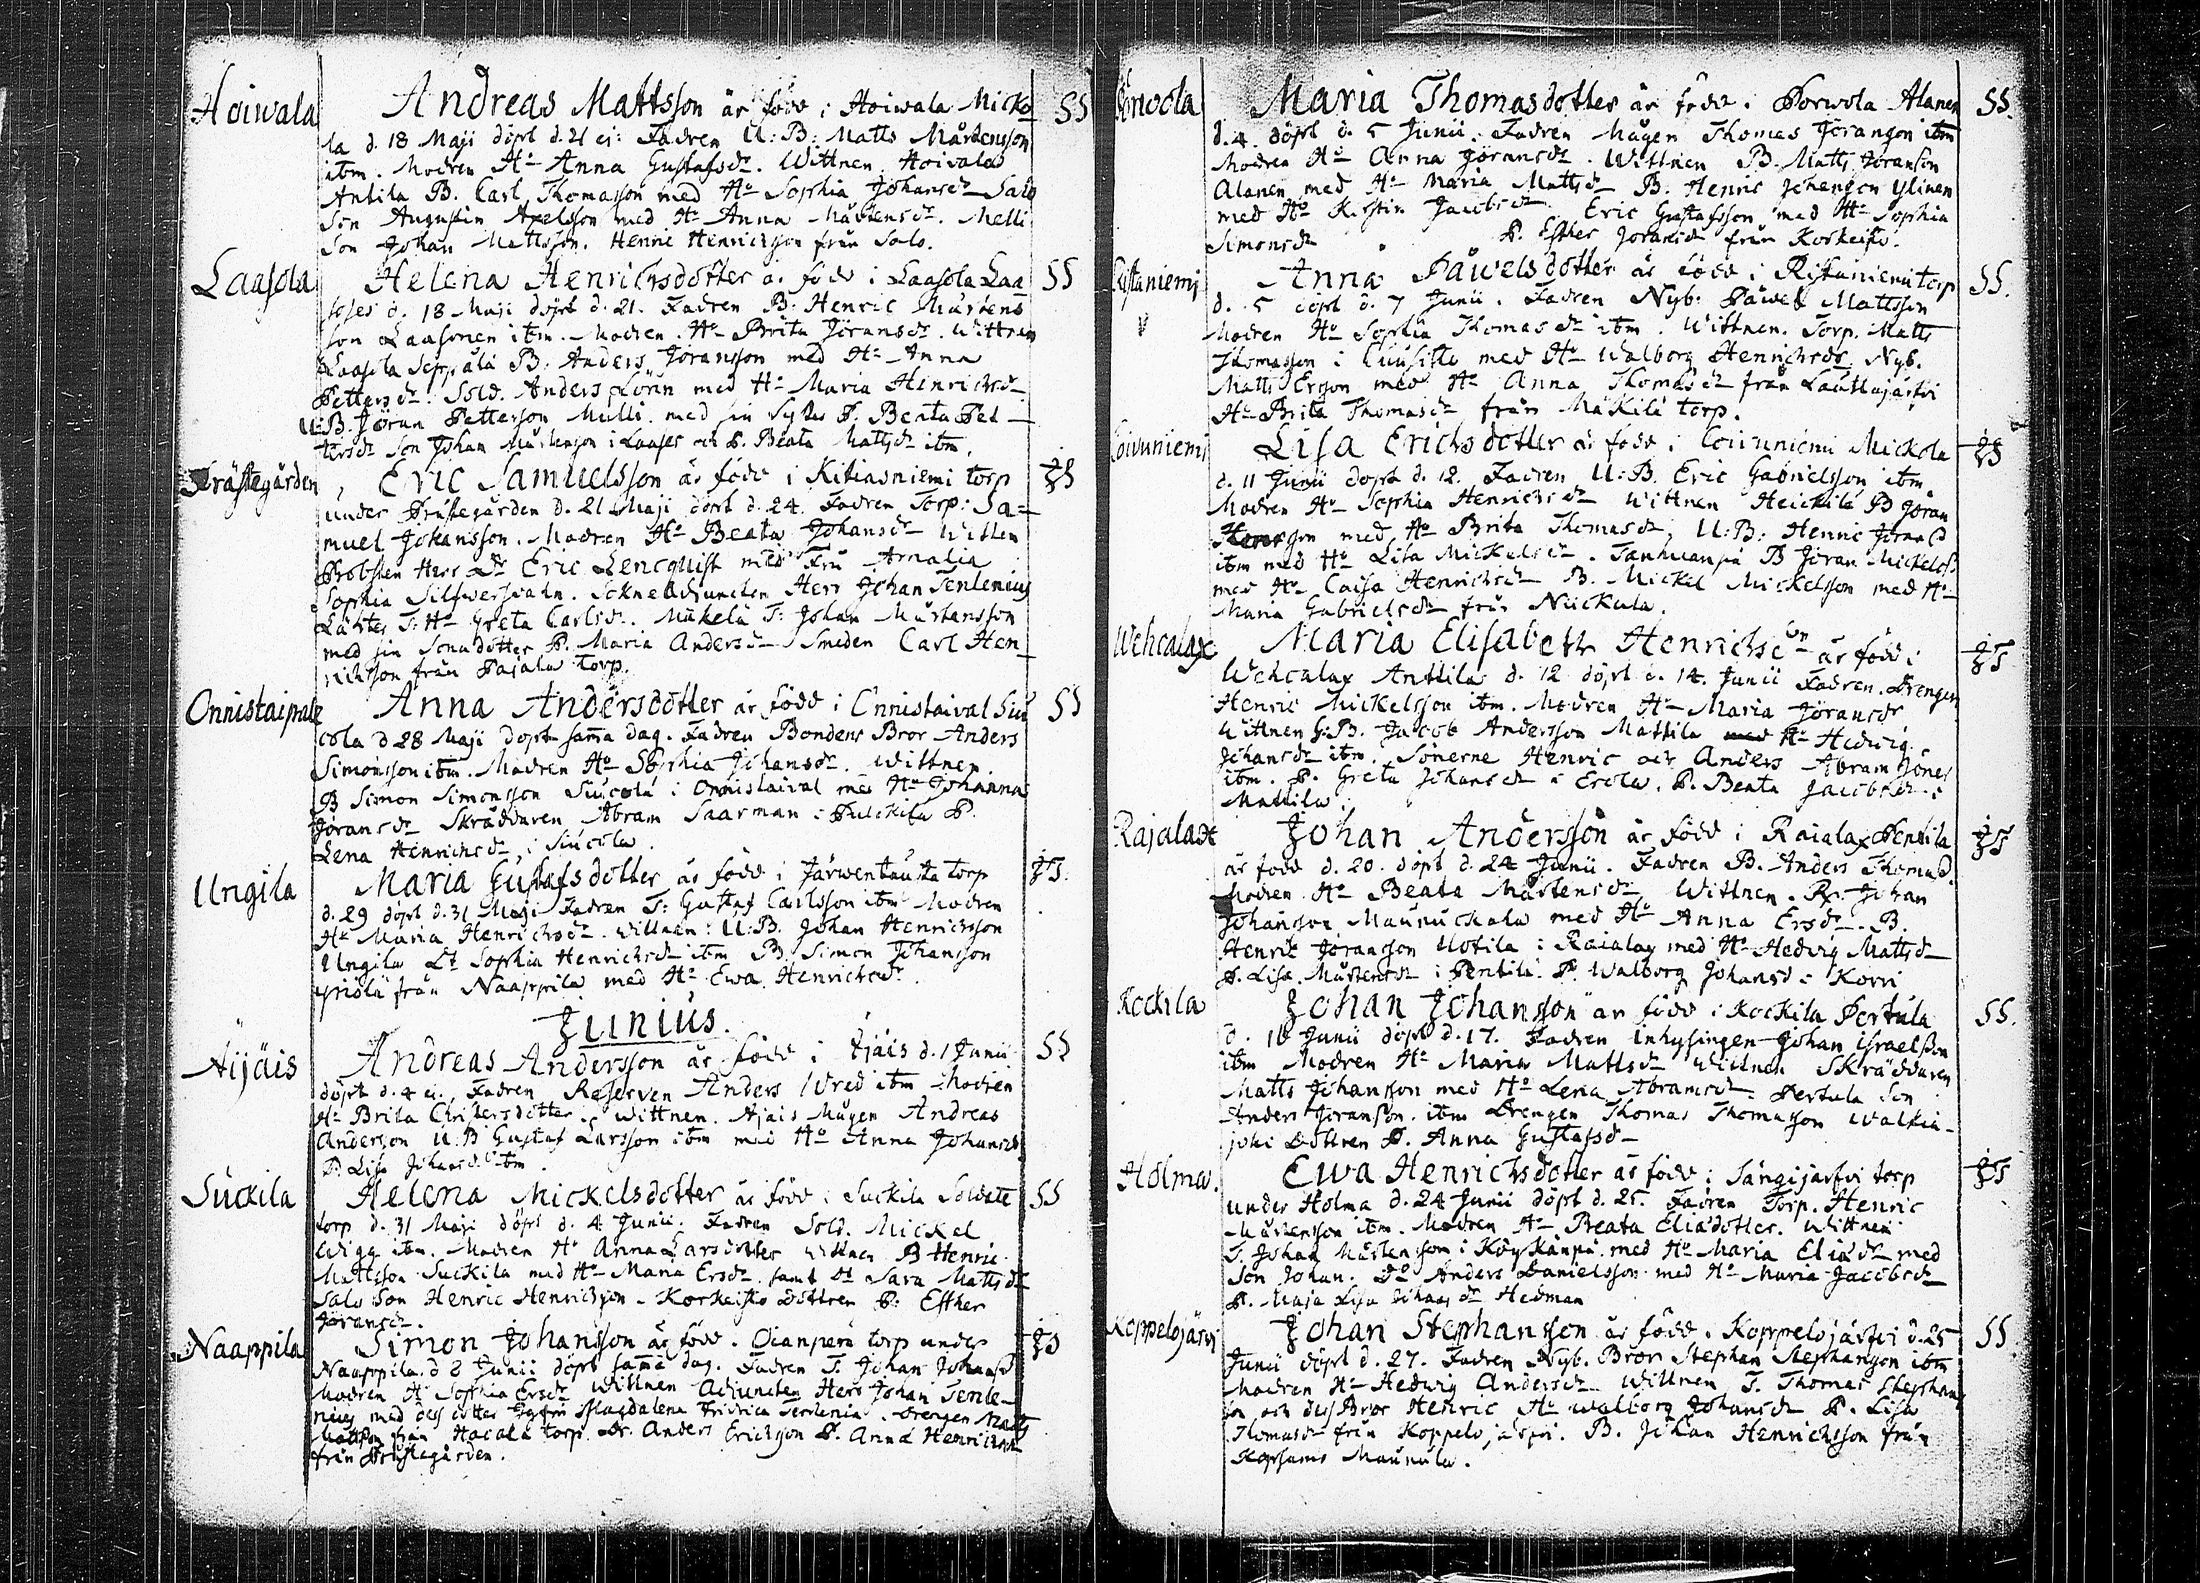 Hoiwala
Andreas Mattsson är född i Hoiwala Micko SS
la d. 18 Maji döpt d. 21 ei: Fadren U: B: Matts Mårtensson
ibm. Modren Ho Anna Gustafsdr. Wittnen Hoivala
Antila B. Carl Thomasson med Ho Sophia Johansdr Salo
Son Augustin Axelsson med Ho Anna Mårtensdr. Melli
Son Johan Mattsson. Henric Henricsson från Salo.
Laasola
Helena Henrichsdotter är född i Laasola Laa SS
soses d. 18 Maji döpt d. 21. Fadren B: Henric Mårtens
son Laasonen ibm. Modren Ho Brita Jöransdr. Wittnen
Laasola Seppälä B. Anders Jöransson med Ho Anna
Pettersdr. Sold. Anders Lönn med Ho Maria Henrichsdr
U: B. Jöran Petterson Melli med sin Syster P. Beata Pet-
tersdr Son Johan Mårtenson i Laases och P. Beata Mattsdr ibm.
Prästegården
Eric Samuelsson är född i Kitiasniemi torp
under Prästegården d. 21 Maji döpt d. 24. Fadren Torp: Sa=
muel Johansson. Modren Ho Beata Johansdr Witten
Probsten Herr Dr Eric Lencquist med Fru Amalia
Sophia Silfwersvahn. SockneAdjuncten Herr Johan Tenlenius
Lähtes T: Ho Greta Carlsdr. Mäkelä T: Johan Mårtensson
med sin Sonadotter P. Maria Andersdr Smeden Carl Hen
richsson från Pajala Torp.
Onnistaipale
Anna Andersdotter är född i Onnistaival Siu SS
cola d 28 Maji döpt sama dag. Fadren Bondens Bror Anders
Simonsson ibm. Modren Ho Sophia Johansdr. Wittnen
B Simon Simonsson Siucola i Onnistaival med Ho Johanna
Jöransdr Skräddaren Abram Saarman i P.
Lena Henrichsdr i Siucola.
Ungila
Maria Gustafsdotter är född i Järwentausta torp
d. 29 döpt d. 31 Maji Fadren T: Gustaf Carlsson ibm Modren
Ho Maria Henrichsdr. Wittnen: U: B. Johan Henrichsson
Ungila Dr Sophia Henrichsdr ibm B. Simon Johansson
Yriölä från Naappila med Ho Ewa Henrichsdr.
Junius.
Äijäis
Andreas Andersson är född i Äjäis d. 1 Junii SS
döpt d. 4 ei. Fadren Reserven Anders Wred ibm Modren
Ho Brita Christersdotter. Wittnen. Äjäis Mågen Andreas
Anderson U: B Gustaf Larsson ibm med Ho Anna Johansd.
P. Lisa Johansdr ibm.
Suckila
Helena Mickelsdotter är född i Suckila Soldate SS
torp d. 31 Maji döpt d. 4 Junii. Fadren Sold. Mickel
Wigg ibm. Modren Ho Anna Larsdotter Wittnen B Henric
Mattsson Suckila med Ho Maria Ersdr. samt Dr Sara Mattsdr
Salo Son Henric Henricsson. Korkeisto Dottren P: Esther
Jöransdr.
Naappila
Simon Johansson är född. torp under
Naappila d 8 Junii döpt sama dag. Fadren T. Johan Johansd
Modren Ho Sophia Ersdr Wittnen Adjuncten Herr Johan Tenle-
nius med dess dotter Magdalena Fridrica Tenlenia. Drengen Matts
Mattson från Hacala torp Dr. Anders Erichsson P. Anna Henrichsdr
från Prästegården.
Porwola
Maria Thomasdotter är född i Porwola Alanen SS.
d. 4. döpt d. 5 Junii. Fadren Mågen Thomas Jöranson ibm
Modren Ho Anna Jöransdr. Wittnen B. Matts Jöranson
Alanen med Ho Maria Mattsdr B. Henric Johanson Ylinen
med Ho Kirstin Jacobsdr Eric Gustafsson med Ho Sophia
Simonsdr P. Esther Jöransdr från Korkeisto.
Ristaniemi
V
Anna Påwelsdotter är född i Ristaniemi torp SS.
d. 5 döpt d. 7 Junii. Fadren Nyb: Påwel Mattsson
Modren Ho Sophia Thomasdr ibm. Wittnen. Torp. Matts
Thomasson i med Ho Walborg Henrichsdr Nyb.
Matts Erson med Ho Anna Thomasdr från Lauttajärfvi
Ho Brita Thomasdr från Mäkilä torp.
Coivuniemi
Lisa Erichsdotter är född i Coivuniemi Mickola
d. 11 Junii döpt d. 12. Fadren U: B. Eric Gabrielsson ibm
Modren Ho Sophia Henrichsdr Wittnen Heickilä B Jöran
med Ho Brita Thomasdr. U: B: Henric Jöransd
ibm med Ho Lisa Mickelsdr. Tanhuanpä B Jöran Mickelss.
med Ho Caisa Henrichsdr B. Mickel Mickelsson med Ho
Maria Gabrielsdr från Nuckula.
Wehcalax
Maria Elisabeth Henrichsdr är född i
Wehcalax Anttila d. 12 döpt d. 14. Junii Fadren. Drengen
Henric Mickelsson ibm. Modren Ho Maria Jöransdr
Wittnen G: B. Jacob Andersson Mattila med Ho Hedwig
Johansdr ibm. Sönerne Henric och Anders Abram Söner
ibm. P. Greta Johansdr i Erola. P. Beata Jacobsdr i
Mattila.
Rajalax
Johan Andersson är född i Raialax Pentila
är född d. 20. döpt d. 24 Junii. Fadren B. Anders Thomasd.
Modren Ho Beata Mårtensdr Wittnen. Johan
Johansson Maunuckala med Ho Anna Ersdr. B.
Henric Jöransson Uotila i Raialax med Ho Hedvig Mattsdr
P. Lisa Mårtensdr i Pentilä. P. Walborg Johansd i Korri
Kockila
Johan Johansson är född i Kockila Pertula SS.
d. 16 Junii döpt d. 17. Fadren Inhysingen Johan Israelsson
ibm Modren Ho Maria Mattsdr Wittnen Skräddaren
Matts Johansson med Ho Lena Abramsdr. Pertula Son
Anders Jöransson. ibm Drengen Thomas Thomasson Walkia-
joki Dottren P. Anna Gustafsd-
Holma.
Ewa Henrichsdotter är född i Sångijärfvi torp
under Holma d. 24 Junii döpt d. 25. Fadren Torp. Henric
Mårtensson ibm. Modren Ho Beata Eliædotter. Wittnen
T. Johan Mårtensson i med Ho Maria Eliædr med
Son Johan. Do Anders Danielsson med Ho Maria Jacobsdr
P. Maja Lisa Johansdr Hedman
Koppelojärvi
Johan Stephansson är född i Koppelojärfvi d. 25 SS.
Junii döpt d. 27. Fadren Nyb. Bror Stephan Stephanson ibm
Modren Ho Hedwig Andersdr Wittnen T. Thomas Stephans
son och dess Bror Henric Ho Walborg Johansdr P. Lisa
Thomasdr från Koppelojärfvi. B. Johan Henrichsson från
Maunula.